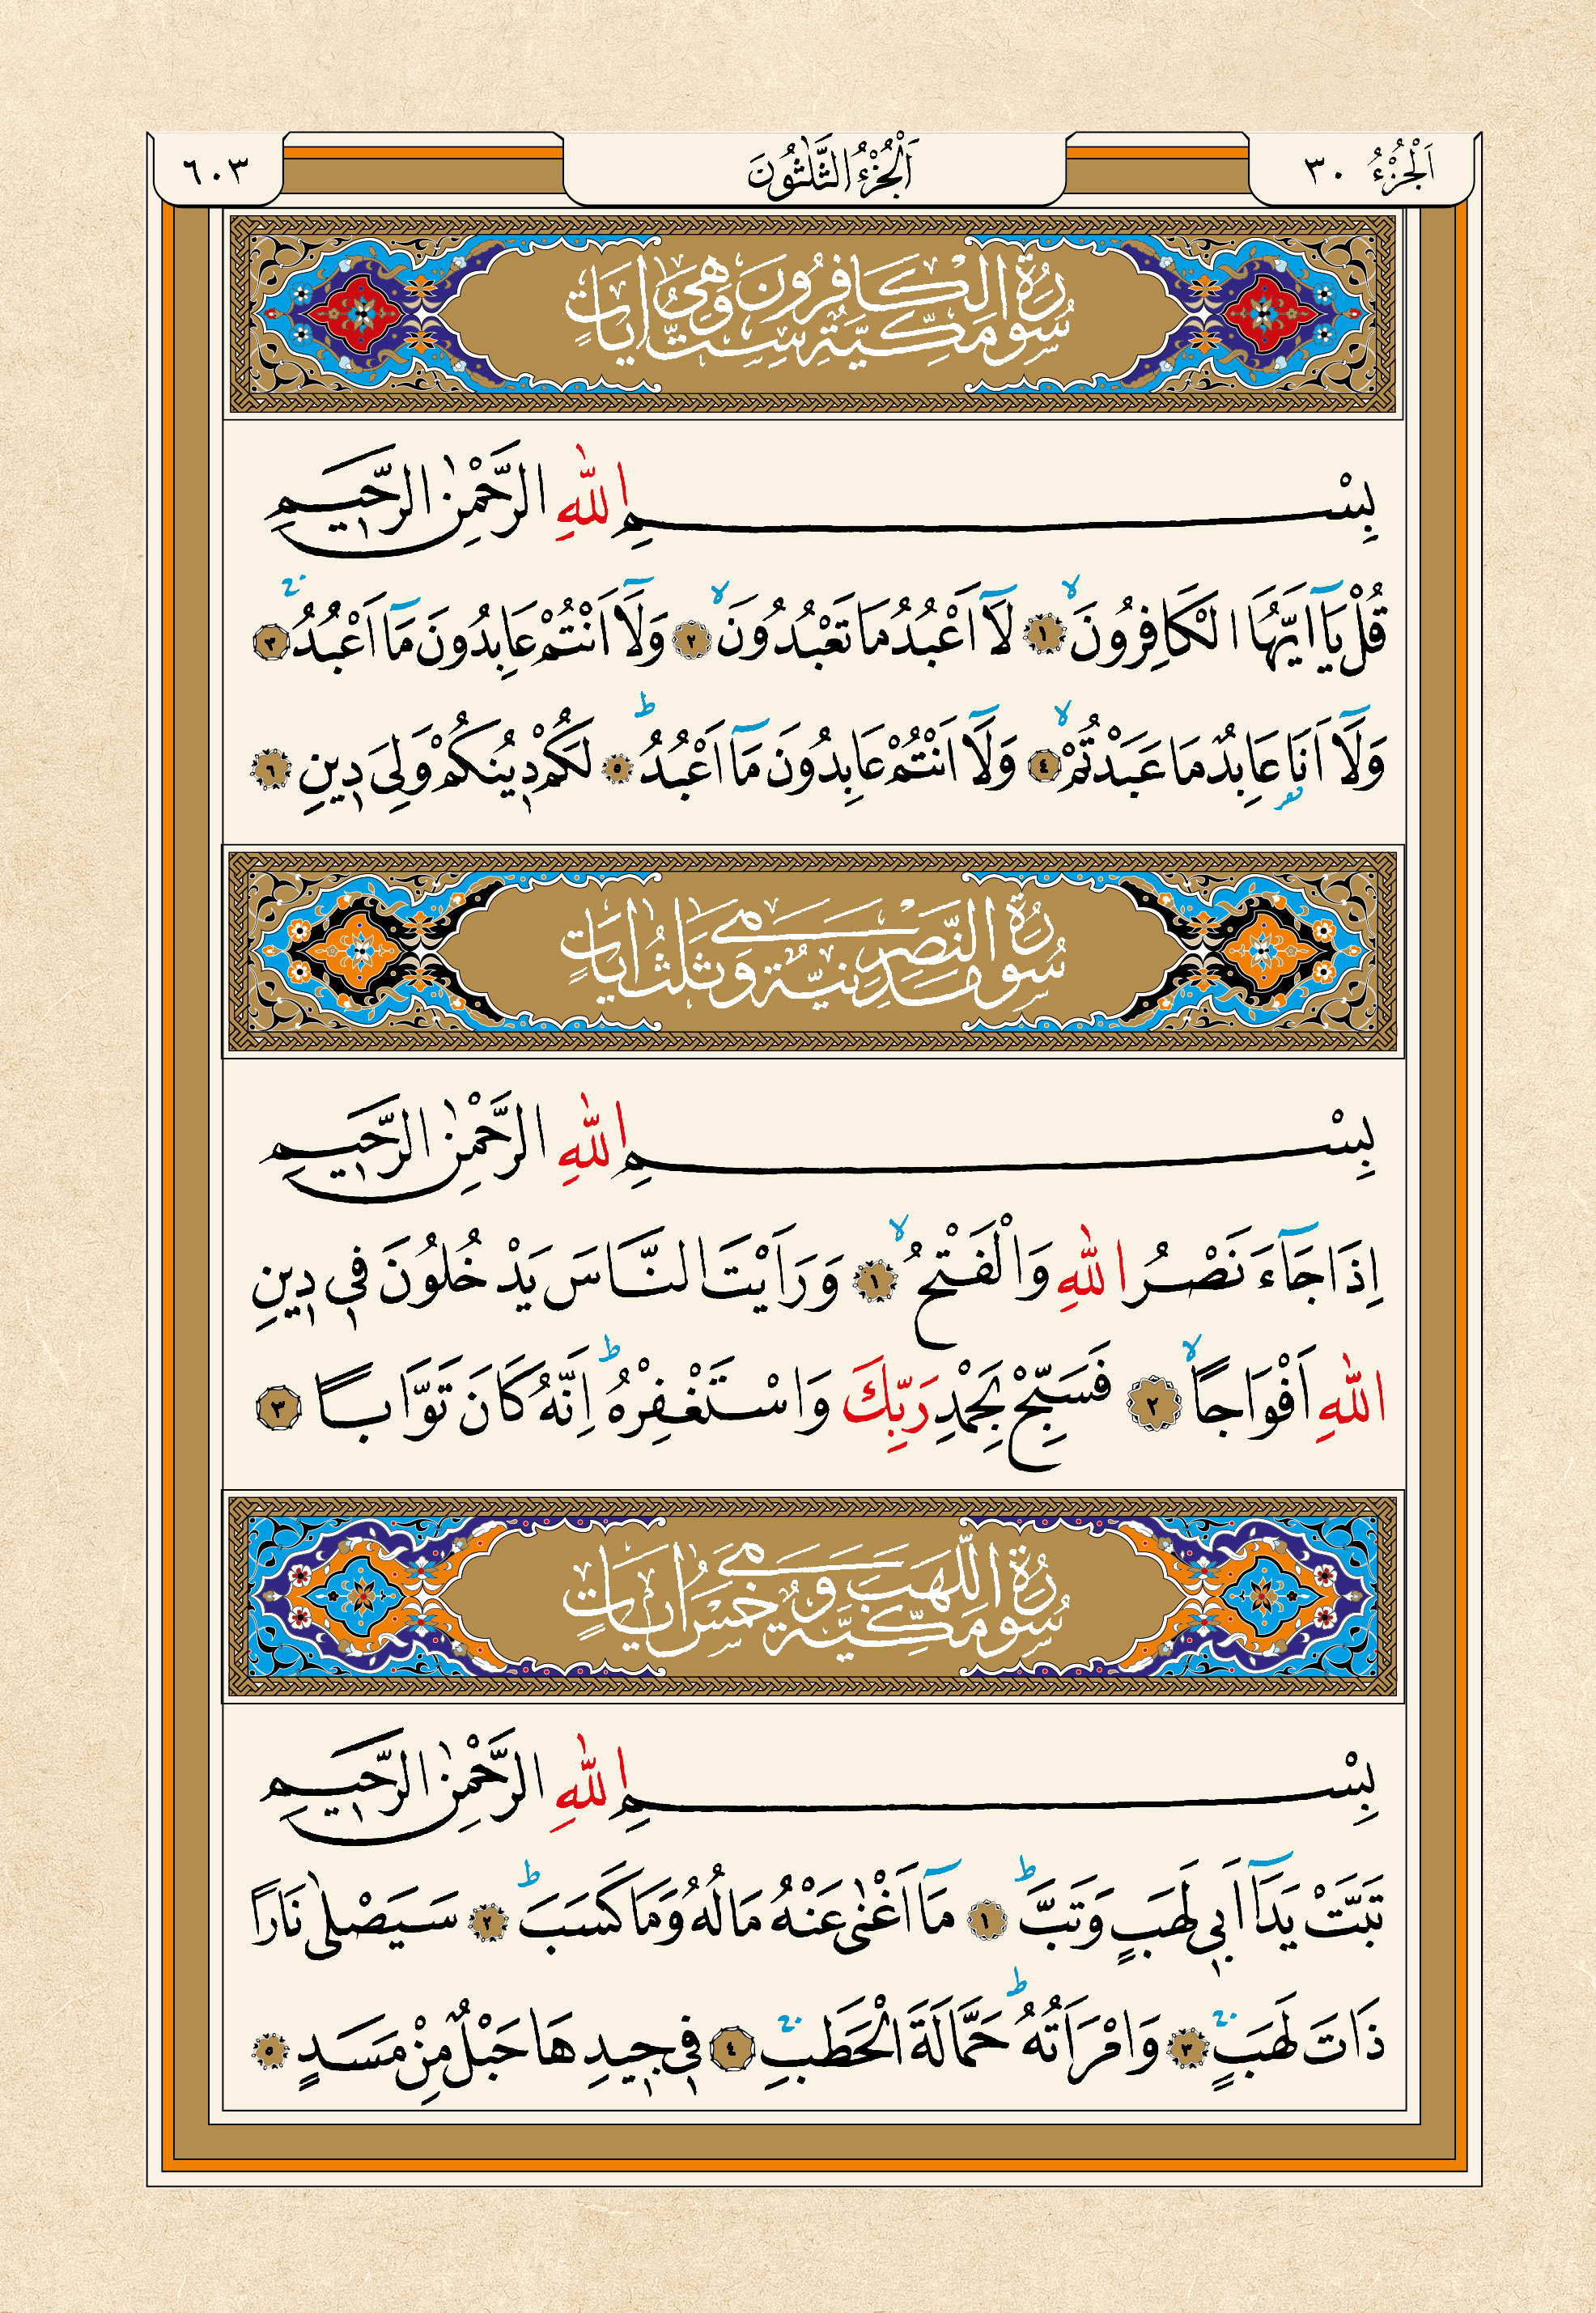 اَلْجُزْءُ ٣٠
اَلْجُزْءُ الثَّلٰثُونَ
٦٠٣
سُورَةُ الْكَافِرُونَ مَكِّيَّةٌ وَهِيَ سِتُّ اٰيَاتٍ
بِسْمِ اللّٰهِ الرَّحْمٰنِ الرَّحٖيمِ
قُلْ يَٓا اَيُّهَا الْكَافِرُونَۙ ﴿١﴾ لَٓا اَعْبُدُ مَا تَعْبُدُونَۙ ﴿٢﴾ وَلَٓا اَنْتُمْ عَابِدُونَ مَٓا اَعْبُدُۚ ﴿٣﴾
وَلَٓا اَنَا۬ عَابِدٌ مَا عَبَدْتُمْۙ ﴿٤﴾ وَلَٓا اَنْتُمْ عَابِدُونَ مَٓا اَعْبُدُۜ ﴿٥﴾ لَكُمْ دٖينُكُمْ وَلِيَ دٖينِ ﴿٦﴾
سُورَةُ النَّصْرِ مَدَنِيَّةٌ وَهِيَ ثَلٰثُ اٰيَاتٍ
بِسْمِ اللّٰهِ الرَّحْمٰنِ الرَّحٖيمِ
اِذَا جَٓاءَ نَصْرُ اللّٰهِ وَالْفَتْحُۙ ﴿١﴾ وَرَاَيْتَ النَّاسَ يَدْخُلُونَ فٖي دٖينِ
اللّٰهِ اَفْوَاجاًۙ ﴿٢﴾ فَسَبِّحْ بِحَمْدِ رَبِّكَ وَاسْتَغْفِرْهُۜ اِنَّهُ كَانَ تَوَّاباً ﴿٣﴾
سُورَةُ اللَّهَبِ مَكِّيَّةٌ وَهِيَ خَمْسُ اٰيَاتٍ
بِسْمِ اللّٰهِ الرَّحْمٰنِ الرَّحٖيمِ
تَبَّتْ يَدَٓا اَبٖي لَهَبٍ وَتَبَّۜ ﴿١﴾ مَٓا اَغْنٰى عَنْهُ مَالُهُ وَمَا كَسَبَۜ ﴿٢﴾ سَيَصْلٰى نَاراً
ذَاتَ لَهَبٍۚ ﴿٣﴾ وَامْرَاَتُهُۜ حَمَّالَةَ الْحَطَبِۚ ﴿٤﴾ فٖي جٖيدِهَا حَبْلٌ مِنْ مَسَدٍ ﴿٥﴾